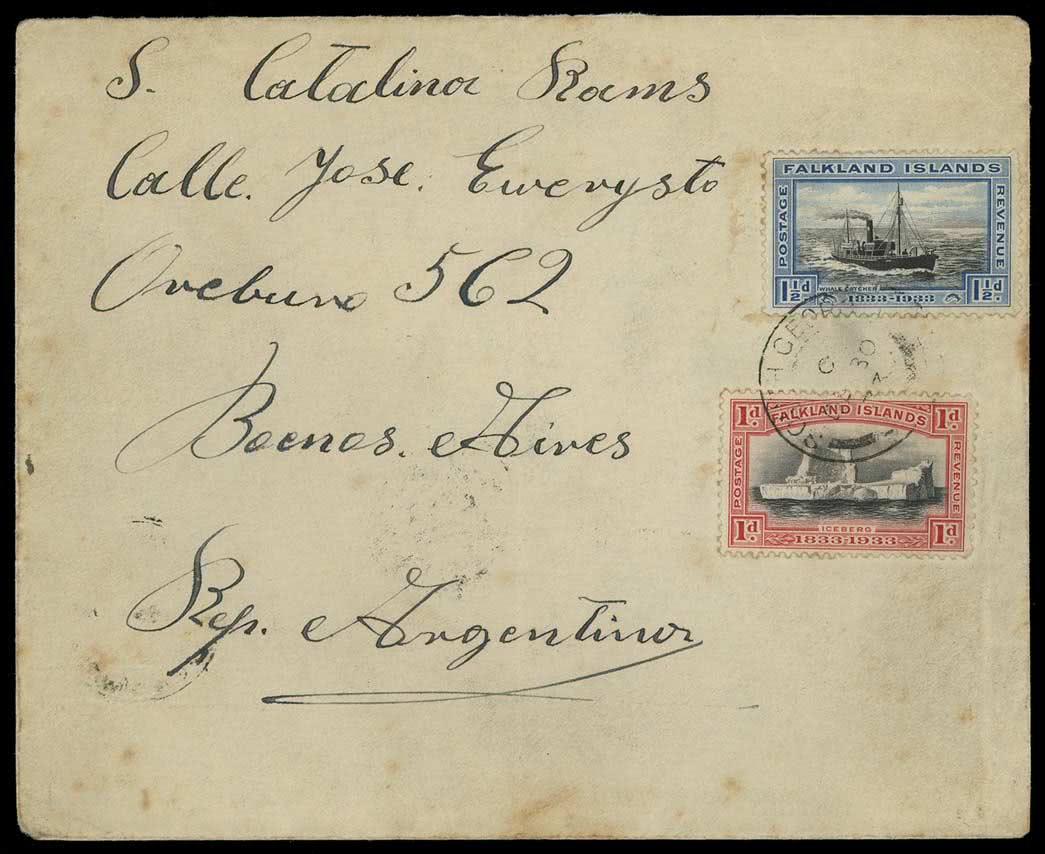 S. Catalina Rams
Calle. Jose. Ewerysto
Oreburo 562
Boenos. Aires
Rep. Argentina
FALKLAND ISLANDS
POSTAGE
REVENUE
1½d
1½d
WHALE CATCHER
1833-1933
1d.
FALKLAND ISLANDS
1d.
POSTAGE
REVENUE
ICEBERG
1d.
1833-1933
1d.